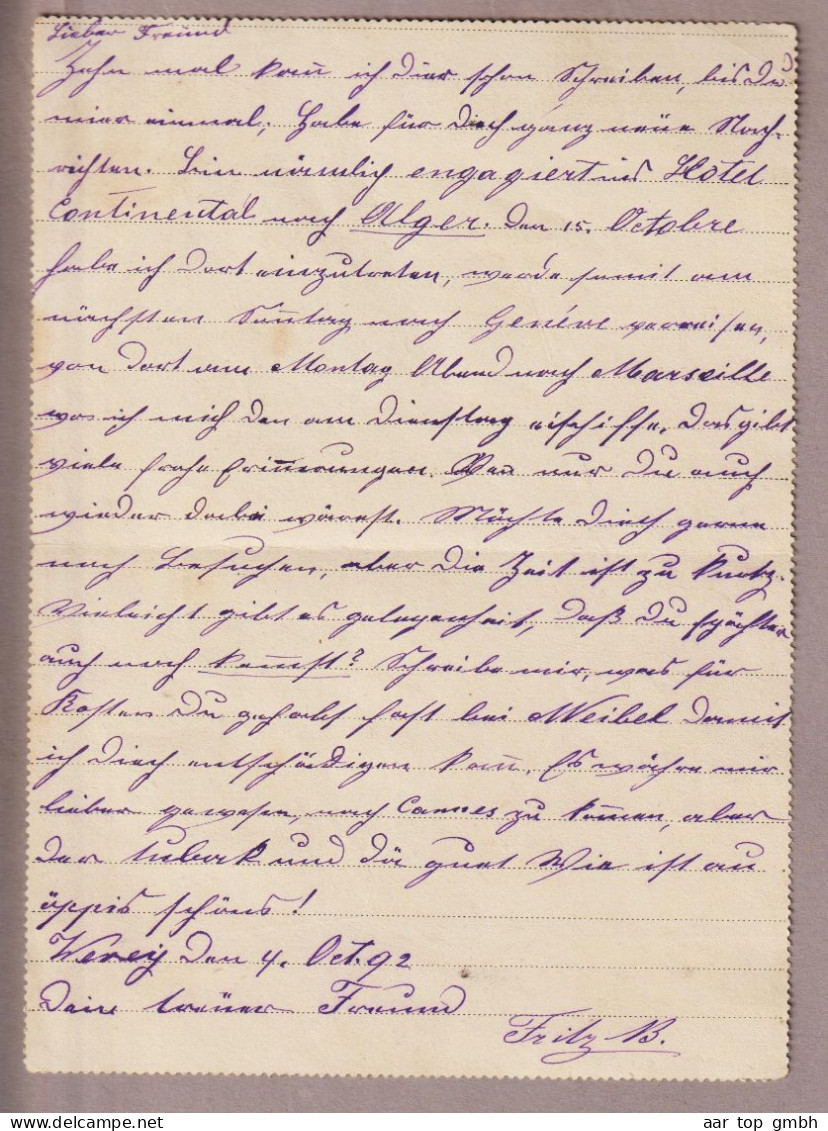 Lieber Freund
Zehn mal kan̄ ich dier schon schreiben, bis du
mier einmal, habe für dich ganz neue Nach-
richten. bin nämlich engagiert ins Hotel
Continental nach Alger. den 15. Octobre
habe ich dort einzutreten, werde somit am
nächsten Son̄tag nach Genéve verreisen,
von dort am Montag Abend nach Marseille
wo ich mich den am Dienstag eischiffe. Das gibt
viele frohe Erin̄erungen. Wen nur du auch
wieder dabei wärest. Möchte dich gerne
noch besuchen, aber die Zeit ist zu kurtz.
Vieleicht gibt es gelegenheit, daß du spähter
auch noch kom̄st? Schreibe mir, was für
Kosten du gehabt hast bei Weibel damit
ich dich entschädigen kan̄. Es währe mir
lieber gewesen, nach Cannes zu kom̄en, aber
der tubak und dä guet Wie ist au
äppis schöns!
Vevey den 4. Oct. 92
Dein treuer Freund
Fritz B.
aar top gmbh